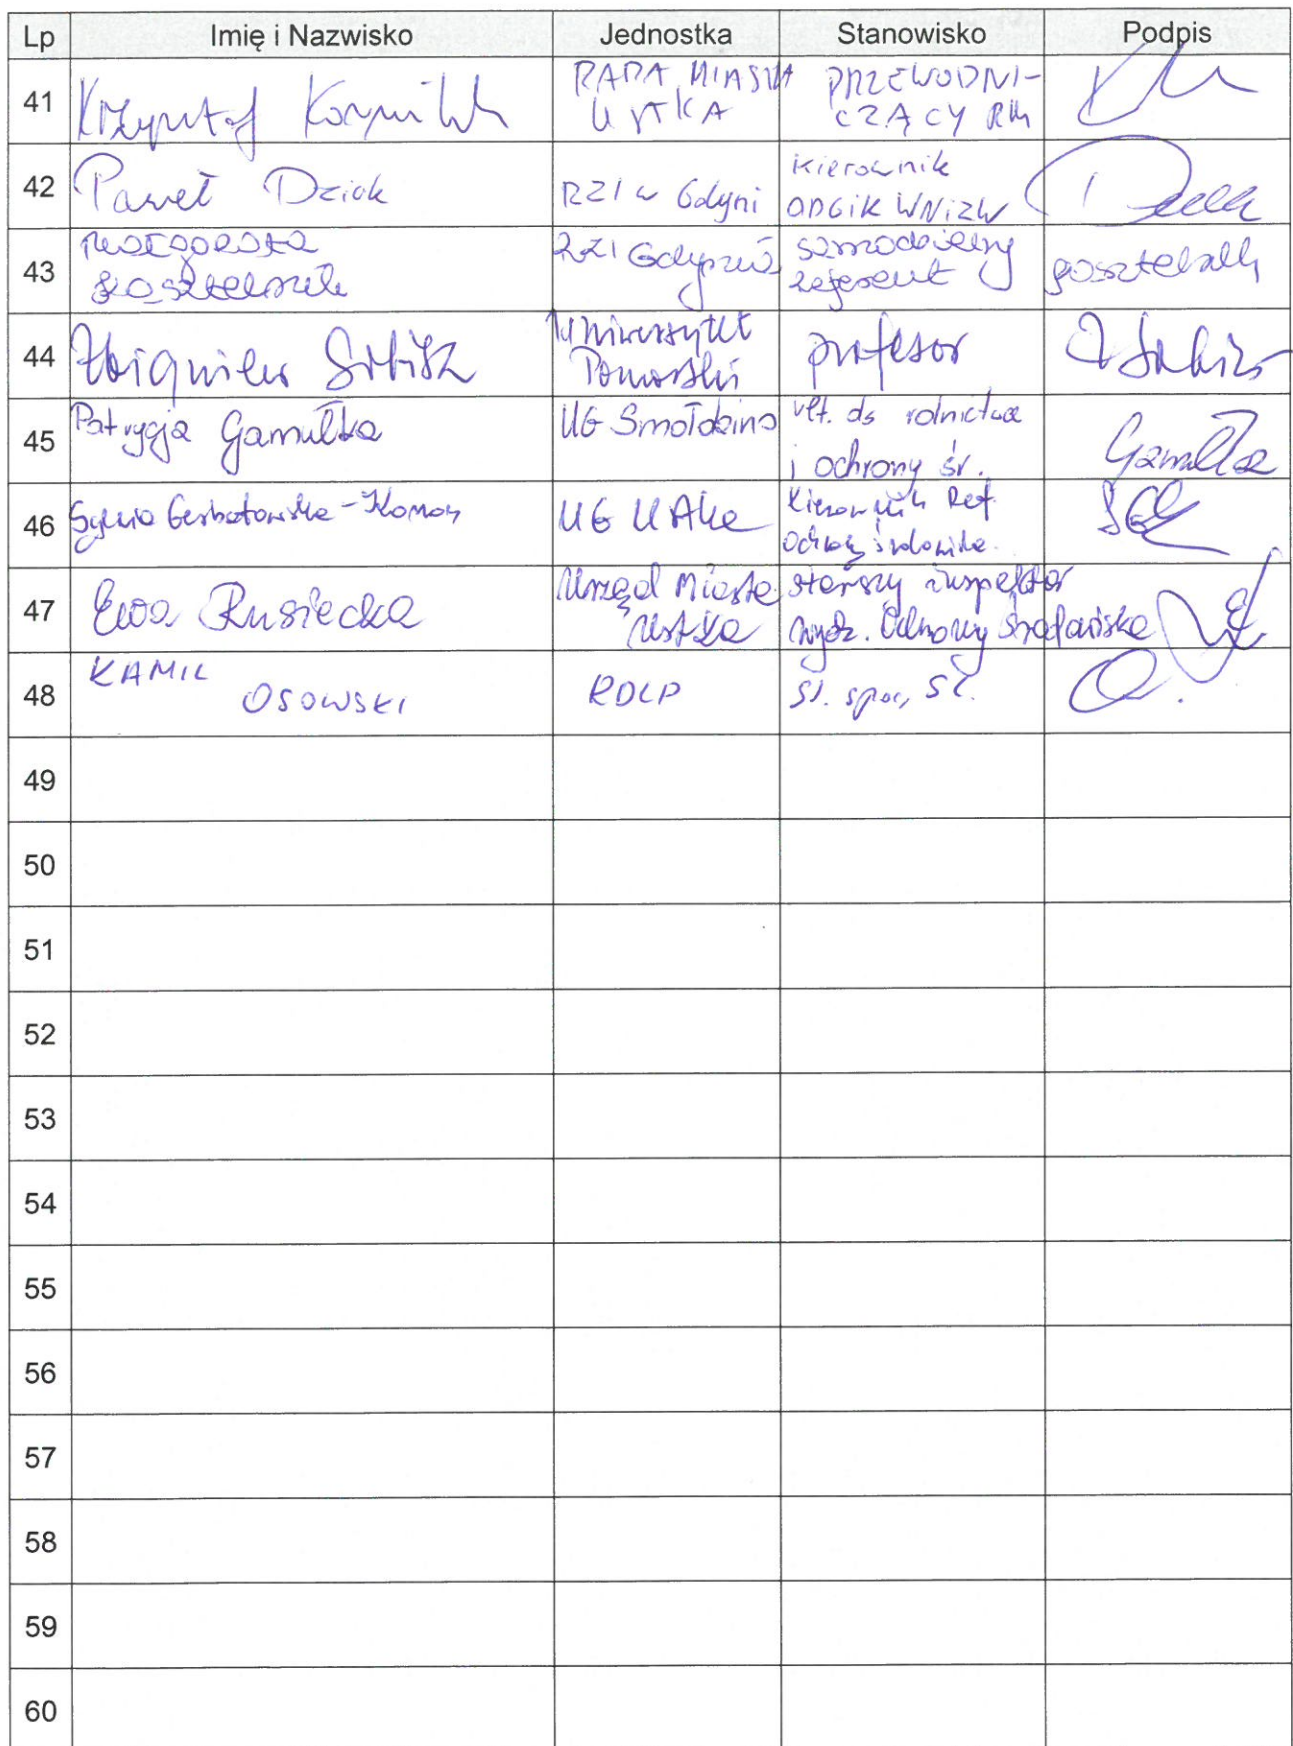 Lp Imię i Nazwisko Jednostka Stanowisko Podpis
41 Krzysztof RADA MIASTA PRZEWODNI-
USTKA CZĄCY RM
42 Paweł Dziok RZI w Gdyni Kierownik
ODGiK WNiZW
43 Małgorzata RZI Gdynia samodzielny
referent
44 Zbigniew Sobisz Uniwersytet profesor
Pomorski
45 Patrycja Gamułka UG Smołdzino ds rolnictwa Gamułka
i ochrony śr.
46 Sylwia Gerbatowska-Komon UG Ustka Kierownik Ref.
Ochrony środowiska
47 Ewa Rusiecka Urząd Miasta starszy inspektor
Ustka wydz. Ochrony Środowiska
48 KAMIL
OSOWSKI RDLP St. spec, SL.
49
50
51
52
53
54
55
56
57
58
59
60